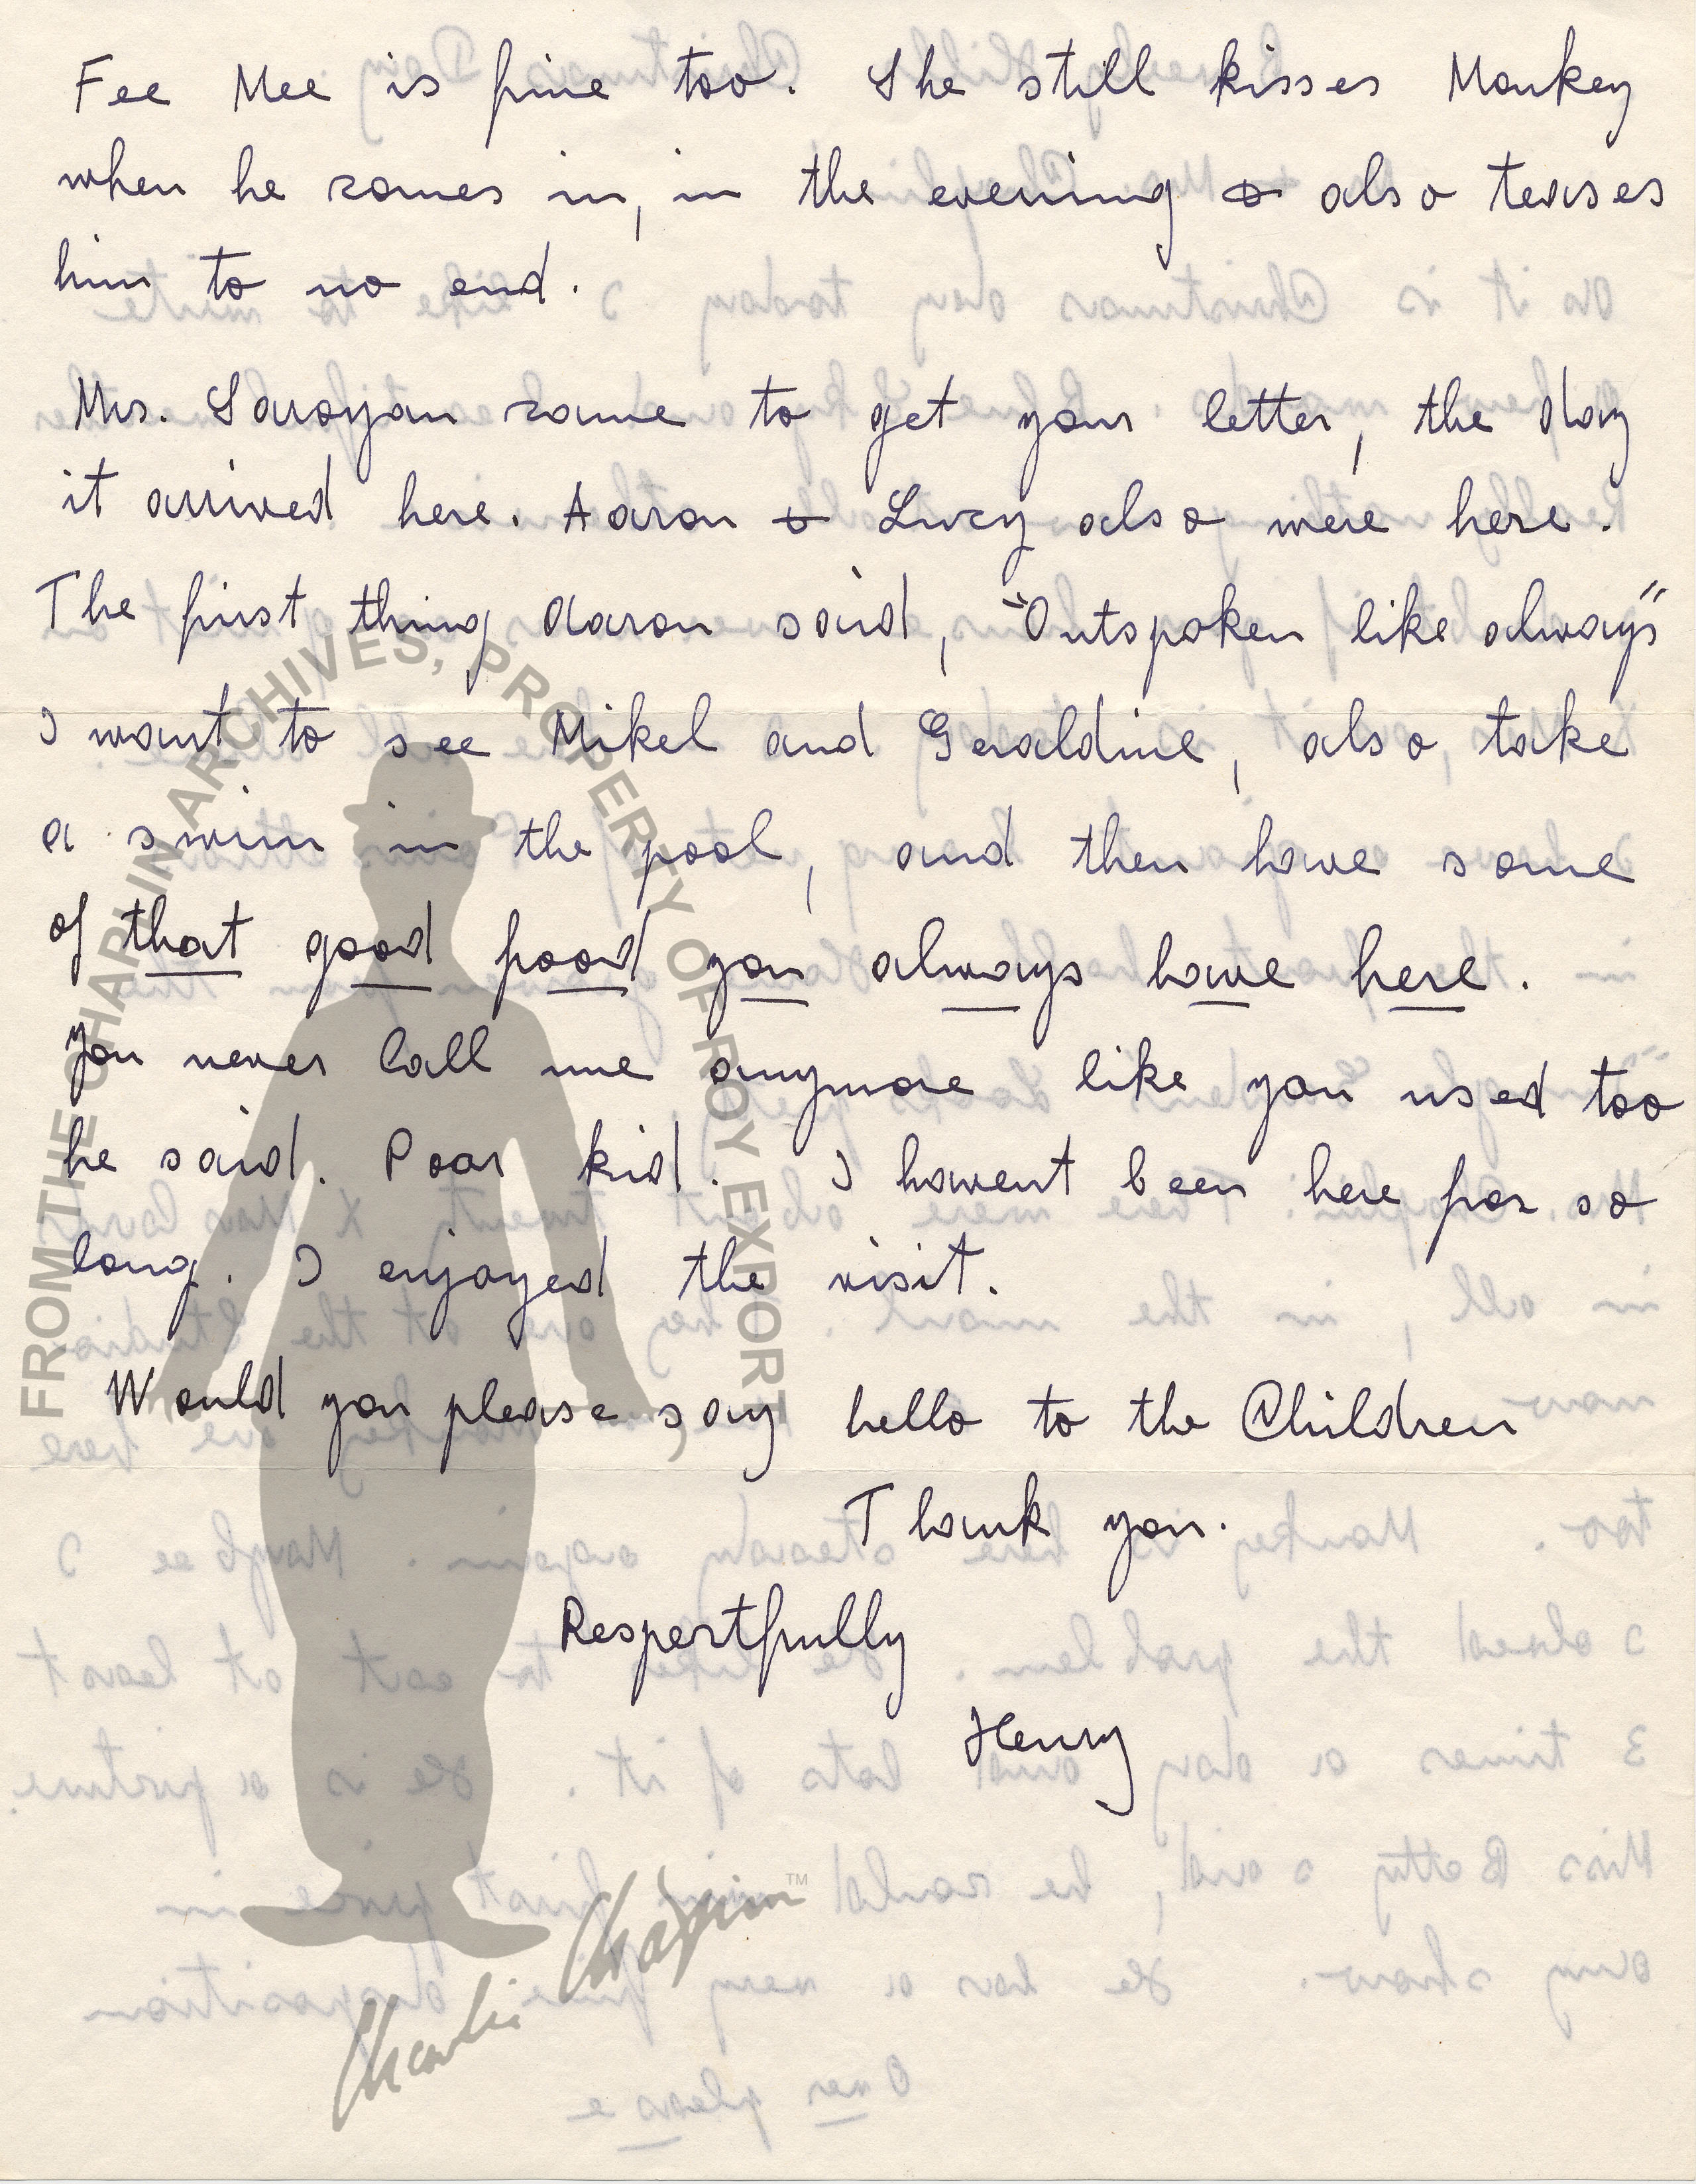 Fee Mee is fine too. She still kisses Monkey
when he comes in, in the evening & also teases
him to no end.
Mrs. Saroyan came to get your letter, the day
it arrived here. Aaron & Lucy also were here.
The first thing Aaron said, "Outspoken like always"
I want to see Mikel and Geraldine, also, take
a swim in the pool, and then have some
of that good food you always have here.
You never call me anymore like you used too
he said. Poor kid. I havent been here for so
long. I enjoyed the visit.
Would you please say hello to the Children
Thank you.
Respectfully
Henry
FROM THE CHAPLIN ARCHIVES, PROPERTY OF ROY EXPORT
Charlie Chaplin™